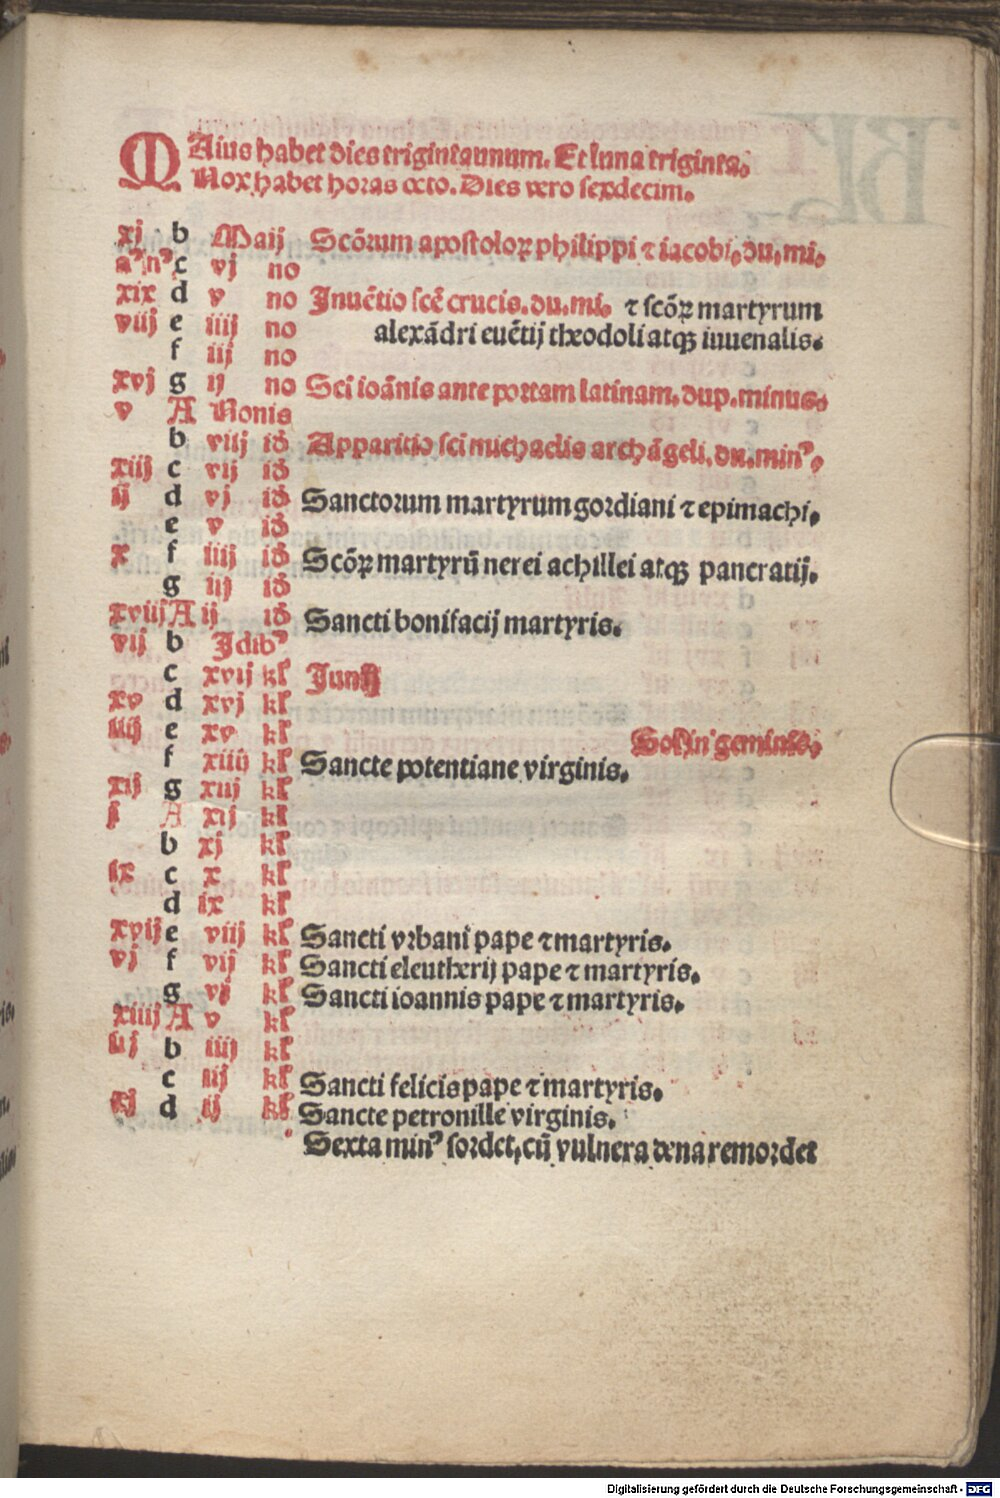 MAius habet dies trigintaunum. Et luna triginta.
Nox habet horas octo. Dies vero sexdecim.
xj b Maij Scōrum apostoloꝝ philippi ⁊ iacobi. du. mi.
c vj no
xix d v no Inuētio scē crucis. du. mi. ⁊ scōꝝ martyrum
viij e iiij no alexādri euētij theodoli atqꝫ iuuenalis.
f iij no
xvj g ij no Sci ioānis ante portam latinam. dup. minus.
v A Nonis
b viij id Apparitio sci michaelis archāgeli. du. minꝰ.
xiij c vij id
ij d vj id Sanctorum martyrum gordiani ⁊ epimachi.
e v id
x f iiij id Scōꝝ martyrū nerei achillei atqꝫ pancratij.
g iij id
xviij A ij id Sancti bonifacij martyris.
vij b Idibꝰ
c xvij kl Junij
xv d xvj kl
iiij e xv kl Sol in geminis.
f xiiij kl Sancte potentiane virginis.
xij g xiij kl
j A xij kl
b xj kl
ix c x kl
d ix kl
xvij e viij kl Sancti vrbani pape ⁊ martyris.
vj f vij kl Sancti eleutherij pape ⁊ martyris.
g vj kl Sancti ioannis pape ⁊ martyris.
xiiij A v kl
iij b iiij kl
c iij kl Sancti felicis pape ⁊ martyris.
xj d ij kl Sancte petronille virginis.
Sexta minꝰ sordet, cū vulnera dena remordet
Digitalisierung gefördert durch die Deutsche Forschungsgemeinschaft - DFG